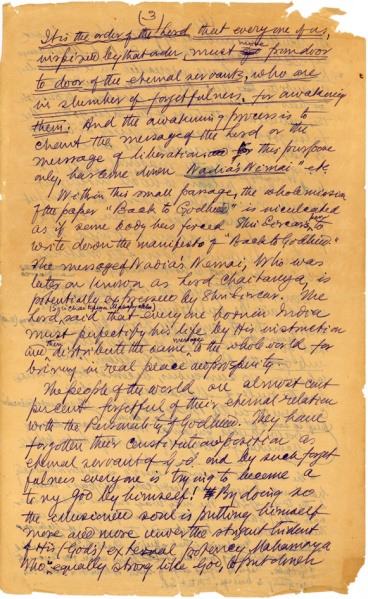 (3)
It is the order of the Lord, that everyone of us,
inspired by that order, must move from door
to door of the eternal servants, who are
in slumber of forgetfulness, for awakening
them. And the awakening process is to
chant the message of the Lord or the
message of liberation for this purpose
only, has come down Nadia's Nemai" etc.
Within this small passage, the whole mission
of the paper "Back to Godhead" is inculcated
as if some body has forced Shri Sircar, to
write down the manifesto of "Back to Godhead"
The message of Nadia's Nemai, Who was
later on known as Lord Chaitanya, is
potentially expressed by Shri Sircar. The
Lord, said that everyone born in India
must perfectify his life by His instruction
and then distribute the same message to the whole world for
bring in real peace and prosperity.
The people of the world are almost cent
percent forgetful of their eternal relation
with the Personality of Godhead. They have
forgotten their constitutional position as
eternal servant of God and by such forget
fulness everyone is trying to become a
tiny God by himself! By doing so
the illusioned soul is putting himself
more and more under the stringent trident
of His (God's) external potency Mahamaya
Who equally strong like God, to put down